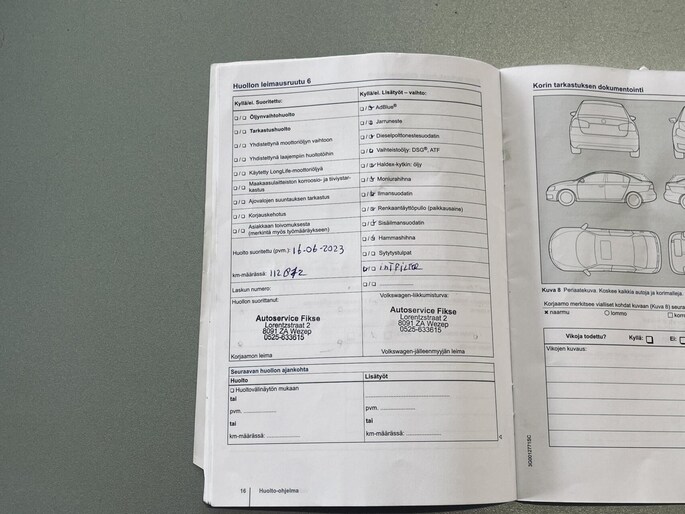 Huollon leimausruutu 6
Kyllä/ei. Suoritettu:
Öljynvaihtohuolto
Tarkastushuolto
Yhdistettynä moottoriöljyn vaihtoon
Yhdistettynä laajempiin huoltotöihin
Käytetty LongLife-moottoriöljyä
Maakaasulaitteiston korroosio- ja tiiviystar-
kastus
Ajovalojen suuntauksen tarkastus
Korjauskehotus
Asiakkaan toivomuksesta
(merkintä myös työmääräykseen)
Huolto suoritettu (pvm.): 16-06-2023
km-määrässä:
Laskun numero:
Huollon suorittanut:
Autoservice Fikse
Lorentzstraat 2
8091 ZA Wezep
0525-633615
Korjaamon leima
Kyllä/ei. Lisätyöt – vaihto:
AdBlue®
Jarruneste
Dieselpolttonestesuodatin
Vaihteistoöljy: DSG®, ATF
Haldex-kytkin: öljy
Moniurahihna
Ilmansuodatin
Renkaantäyttöpullo (paikkausaine)
Sisäilmansuodatin
Hammashihna
Sytytystulpat
Volkswagen-liikkumisturva:
Autoservice Fikse
Lorentzstraat 2
8091 ZA Wezep
0525-633615
Volkswagen-jälleenmyyjän leima
Seuraavan huollon ajankohta
Huolto
Lisätyöt
Huoltovälinäytön mukaan
tai
pvm.
tai
km-määrässä:
pvm.
tai
km-määrässä:
16 Huolto-ohjelma
Korin tarkastuksen dokumentointi
Kuva 8 Periaatekuva. Koskee kaikkia autoja ja korimalleja.
Korjaamo merkitsee vialliset kohdat kuvaan (Kuva 8) seura
x naarmu
○ lommo
Vikoja todettu? Kyllä: Ei:
Vikojen kuvaus: